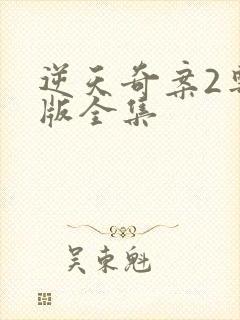 逆天奇案2粤
版全集
吴东魁